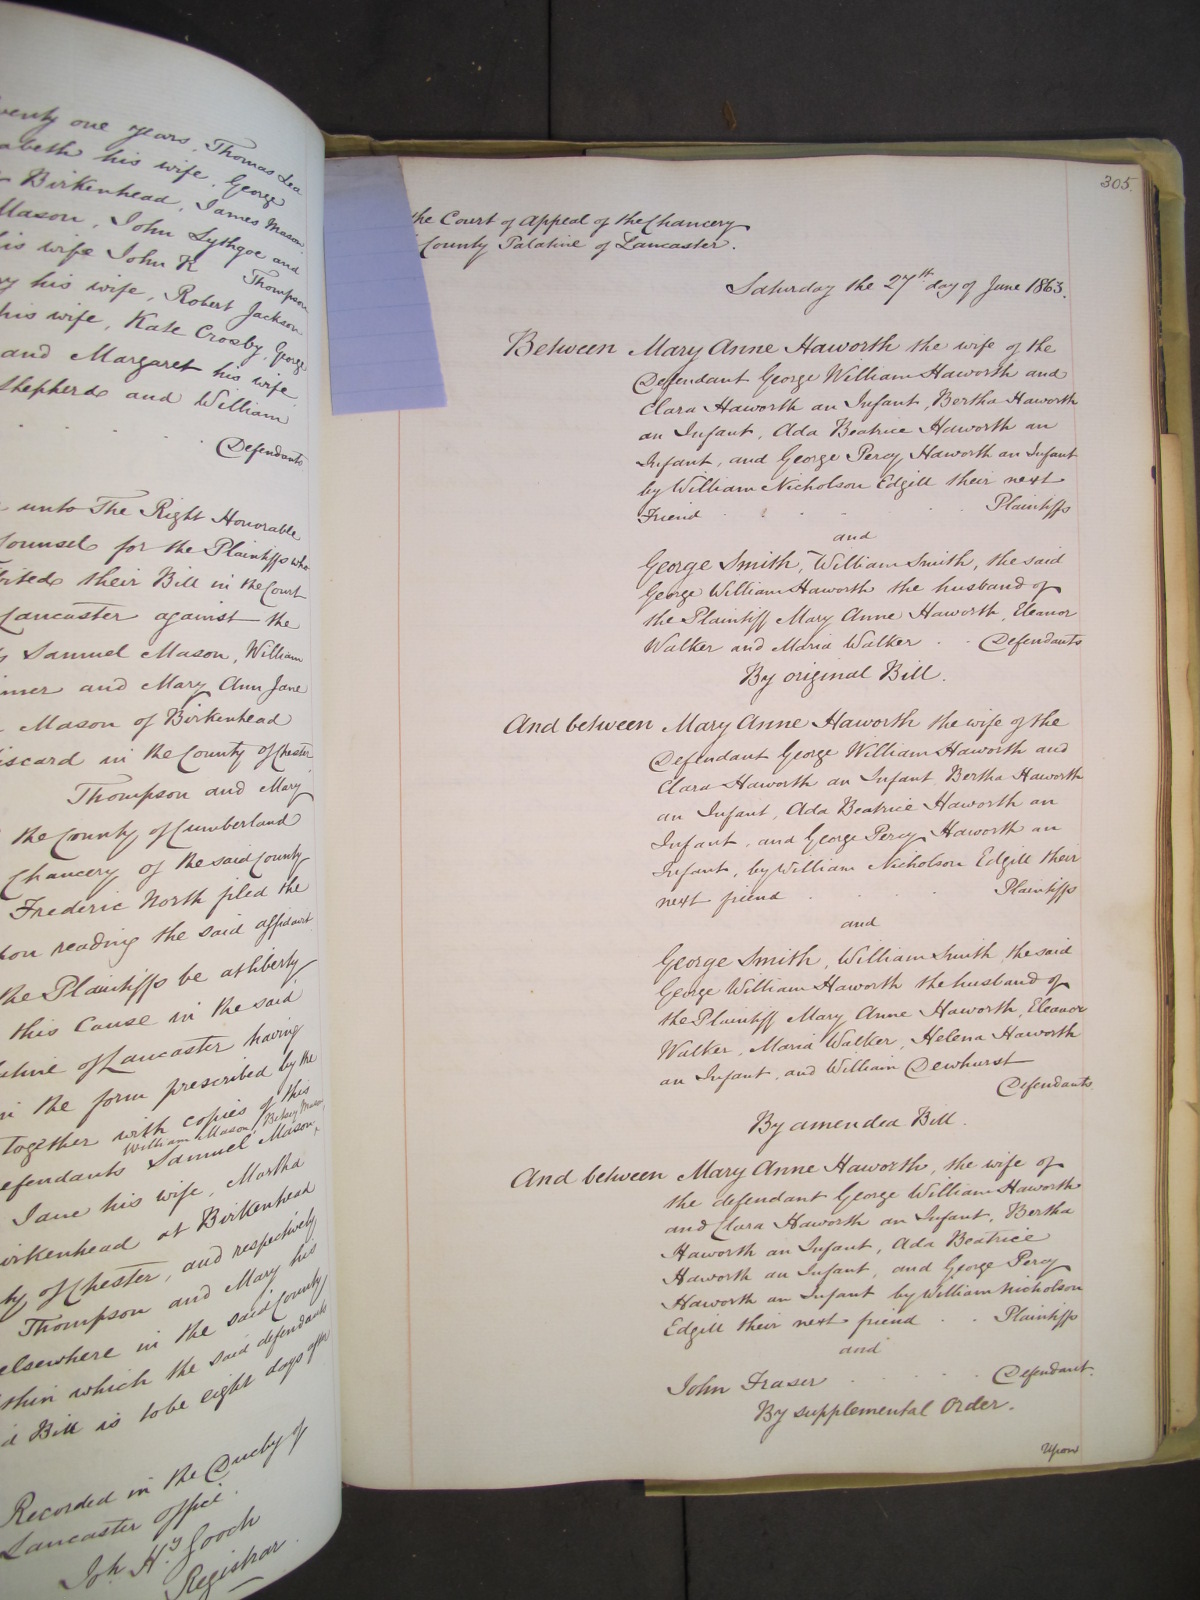 twenty one years, Thomas Lea
his wife, George
Birkenhead, James Mason
Mason, John Lythgoe and
his wife John R Thompson
his wife, Robert Jackson
his wife, Kate Crosby, George
and Margaret his wife
Shepherd and William
Defendants
unto The Right Honorable
Counsel for the Plaintiffs who
their Bill in the Court
Lancaster against the
Samuel Mason, William
and Mary Ann Jane
Mason of Birkenhead
in the County of Chester
Thompson and Mary
the County of Cumberland
Chancery of the said County
Frederic North filed the
upon reading the said affidavit
the Plaintiffs be at liberty
this Cause in the said
of Lancaster having
in the form prescribed by the
together with copies of this
William Mason, Betsey Mason
Defendants Samuel Mason,
Jane his wife, Martha
Birkenhead at Birkenhead
of Chester, and respectively
Thompson and Mary his
elsewhere in the said County
within which the said defendants
Bill is to be eight days after
Recorded in the Duchy of
Lancaster Office.
Joh. Hy. Gooch
Registrar.
305.
the Court of Appeal of the Chancery
County Palatine of Lancaster.
Saturday the 27th day of June 1863.
Between Mary Anne Haworth the wife of the
Defendant George William Haworth and
Clara Haworth an Infant, Bertha Haworth
an Infant, Ada Beatrice Haworth an
Infant, and George Percy Haworth an Infant
by William Nicholson Edgill their next
Friend . . . . Plaintiffs
and
George Smith, William Smith, the said
George William Haworth the husband of
the Plaintiff Mary Anne Haworth, Eleanor
Walker and Maria Walker . . Defendants
By original Bill.
And between Mary Anne Haworth the wife of the
Defendant George William Haworth and
Clara Haworth an Infant Bertha Haworth
an Infant, Ada Beatrice Haworth an
Infant, and George Percy Haworth an
Infant, by William Nicholson Edgill their
next friend . . . Plaintiffs
and
George Smith, William Smith the said
George William Haworth the husband of
the Plaintiff Mary Anne Haworth, Eleanor
Walker, Maria Walker, Helena Haworth
an Infant, and William Dewhurst
Defendants
By amended Bill.
And between Mary Anne Haworth, the wife of
the defendant George William Haworth
and Clara Haworth an Infant, Bertha
Haworth an Infant, Ada Beatrice
Haworth an Infant, and George Percy
Haworth an Infant by William Nicholson
Edgill their next friend . . Plaintiffs
and
John Fraser . . . . Defendant.
By supplemental Order.
Upon